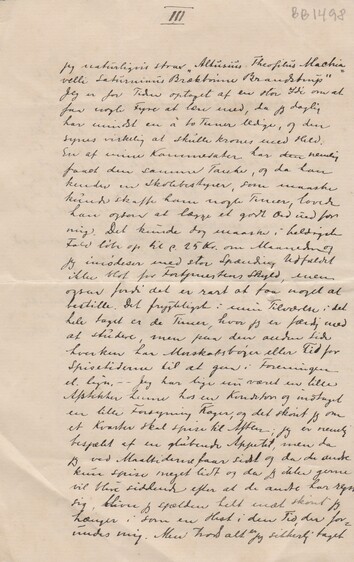 III
BB1498
jeg naturligvis svar "Althusius Theofilus Machia
velli Saturninus Brakbonne Brandstrup"
Jeg er for Tiden optaget af en stor Idé om at
faa nogle Fyre at læse med, da jeg daglig
har mindst en à to Timer ledige, og den
synes virkelig at skulle krones med Held.
En af mine Kammerater har nemlig
faaet den samme Tanke, og da han
kender en Skolebestyrer, som maaske
kunde skaffe ham nogle Timer, lovede
han ogsaa at lægge et godt Ord ind for
mig. Det kunde dog maaske i heldigste
Fald løbe op til c. 25 Kr. om Maaneden og
jeg imødeser med stor Spænding Udfaldet
ikke blot for Fortjenestens Skyld, men
ogsaa fordi det er rart at faa noget at
bestille. Det frygteligste i min Tilværelse i det
hele taget er de Timer, hvor jeg er færdig med
at studere, men paa den anden Side
hverken har Morskabsbøger eller Tid for
Spisetiderne til at gaa i Foreningen
el. lign. — Jeg har lige nu været en lille
Afstikker henne hos en Konditor og indtaget
en lille Forsyning Kager, og det skønt jeg om
et Kvarter skal spise til Aften; jeg er nemlig
besjælet af en glubende Appetit, men da
jeg ved Maaltiderne faar sidst og da de andre
kun spise meget lidt og da jeg ikke gerne
vil blive siddende efter at de andre har rejst
sig, bliver jeg sjælden helt mæt skønt jeg
hænger i som en Hest i den Tid der for-
undes mig. Men trods alt er jeg sikkerlig taget